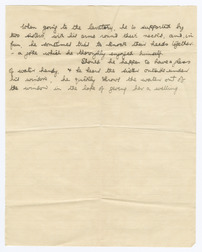 When going to the lavatory, he is supported by
two sisters, with his arms round their necks, and, in
fun he sometimes tries to knock their heads together
- a joke which he thoroughly enjoyed himself.
Should he happen to have a glass
of water handy & he hears the sister outside under
his window, he quietly throws the water out of
the window in the hope of giving her a wetting